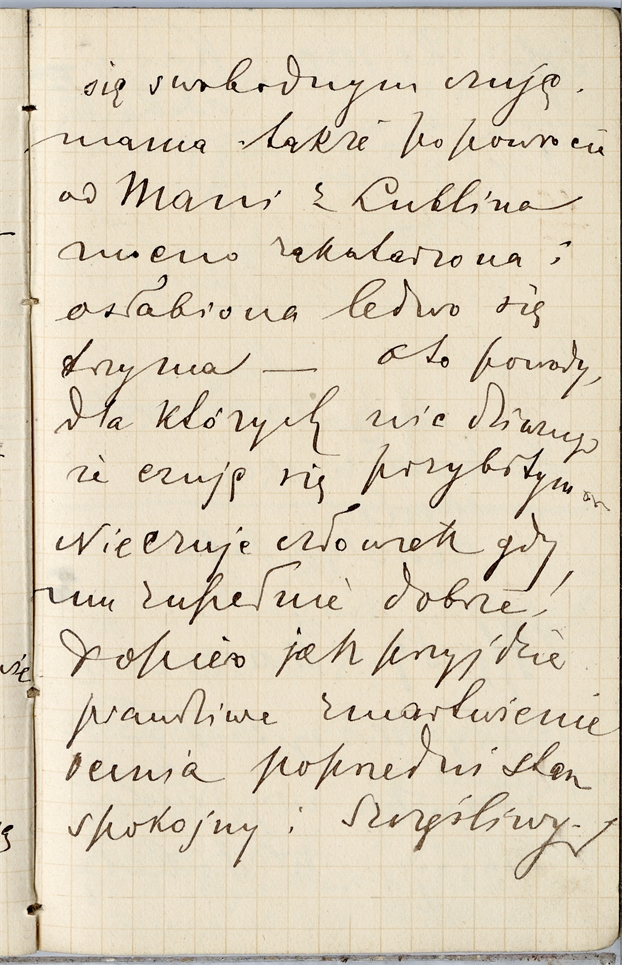 się swobodnym czuję.
mama także po powrocie
od Mani z Lublina
mocno zakatarzona i
osłabiona ledwo się
trzyma — oto powody,
dla których nic dziwnego
że czuję się przybitym
Nie czuje człowiek gdy
mu zupełnie dobrze!
Dopiero jak przyjdzie
prawdziwe zmartwienie
ocenia poprzedni stan
spokojny i szczęśliwy.